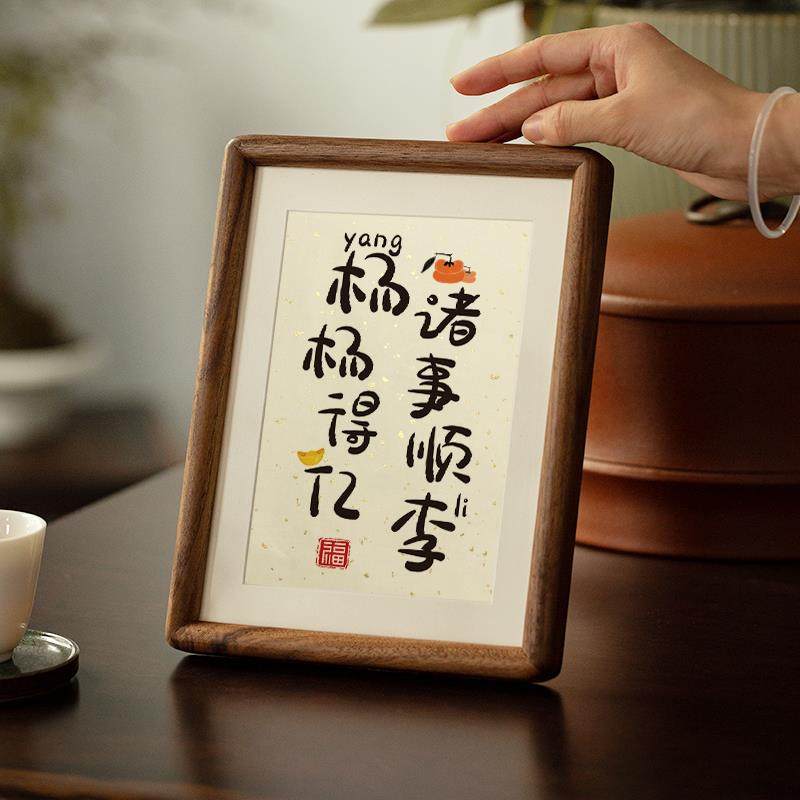 诸事顺李
li
yang
杨杨得亿
福